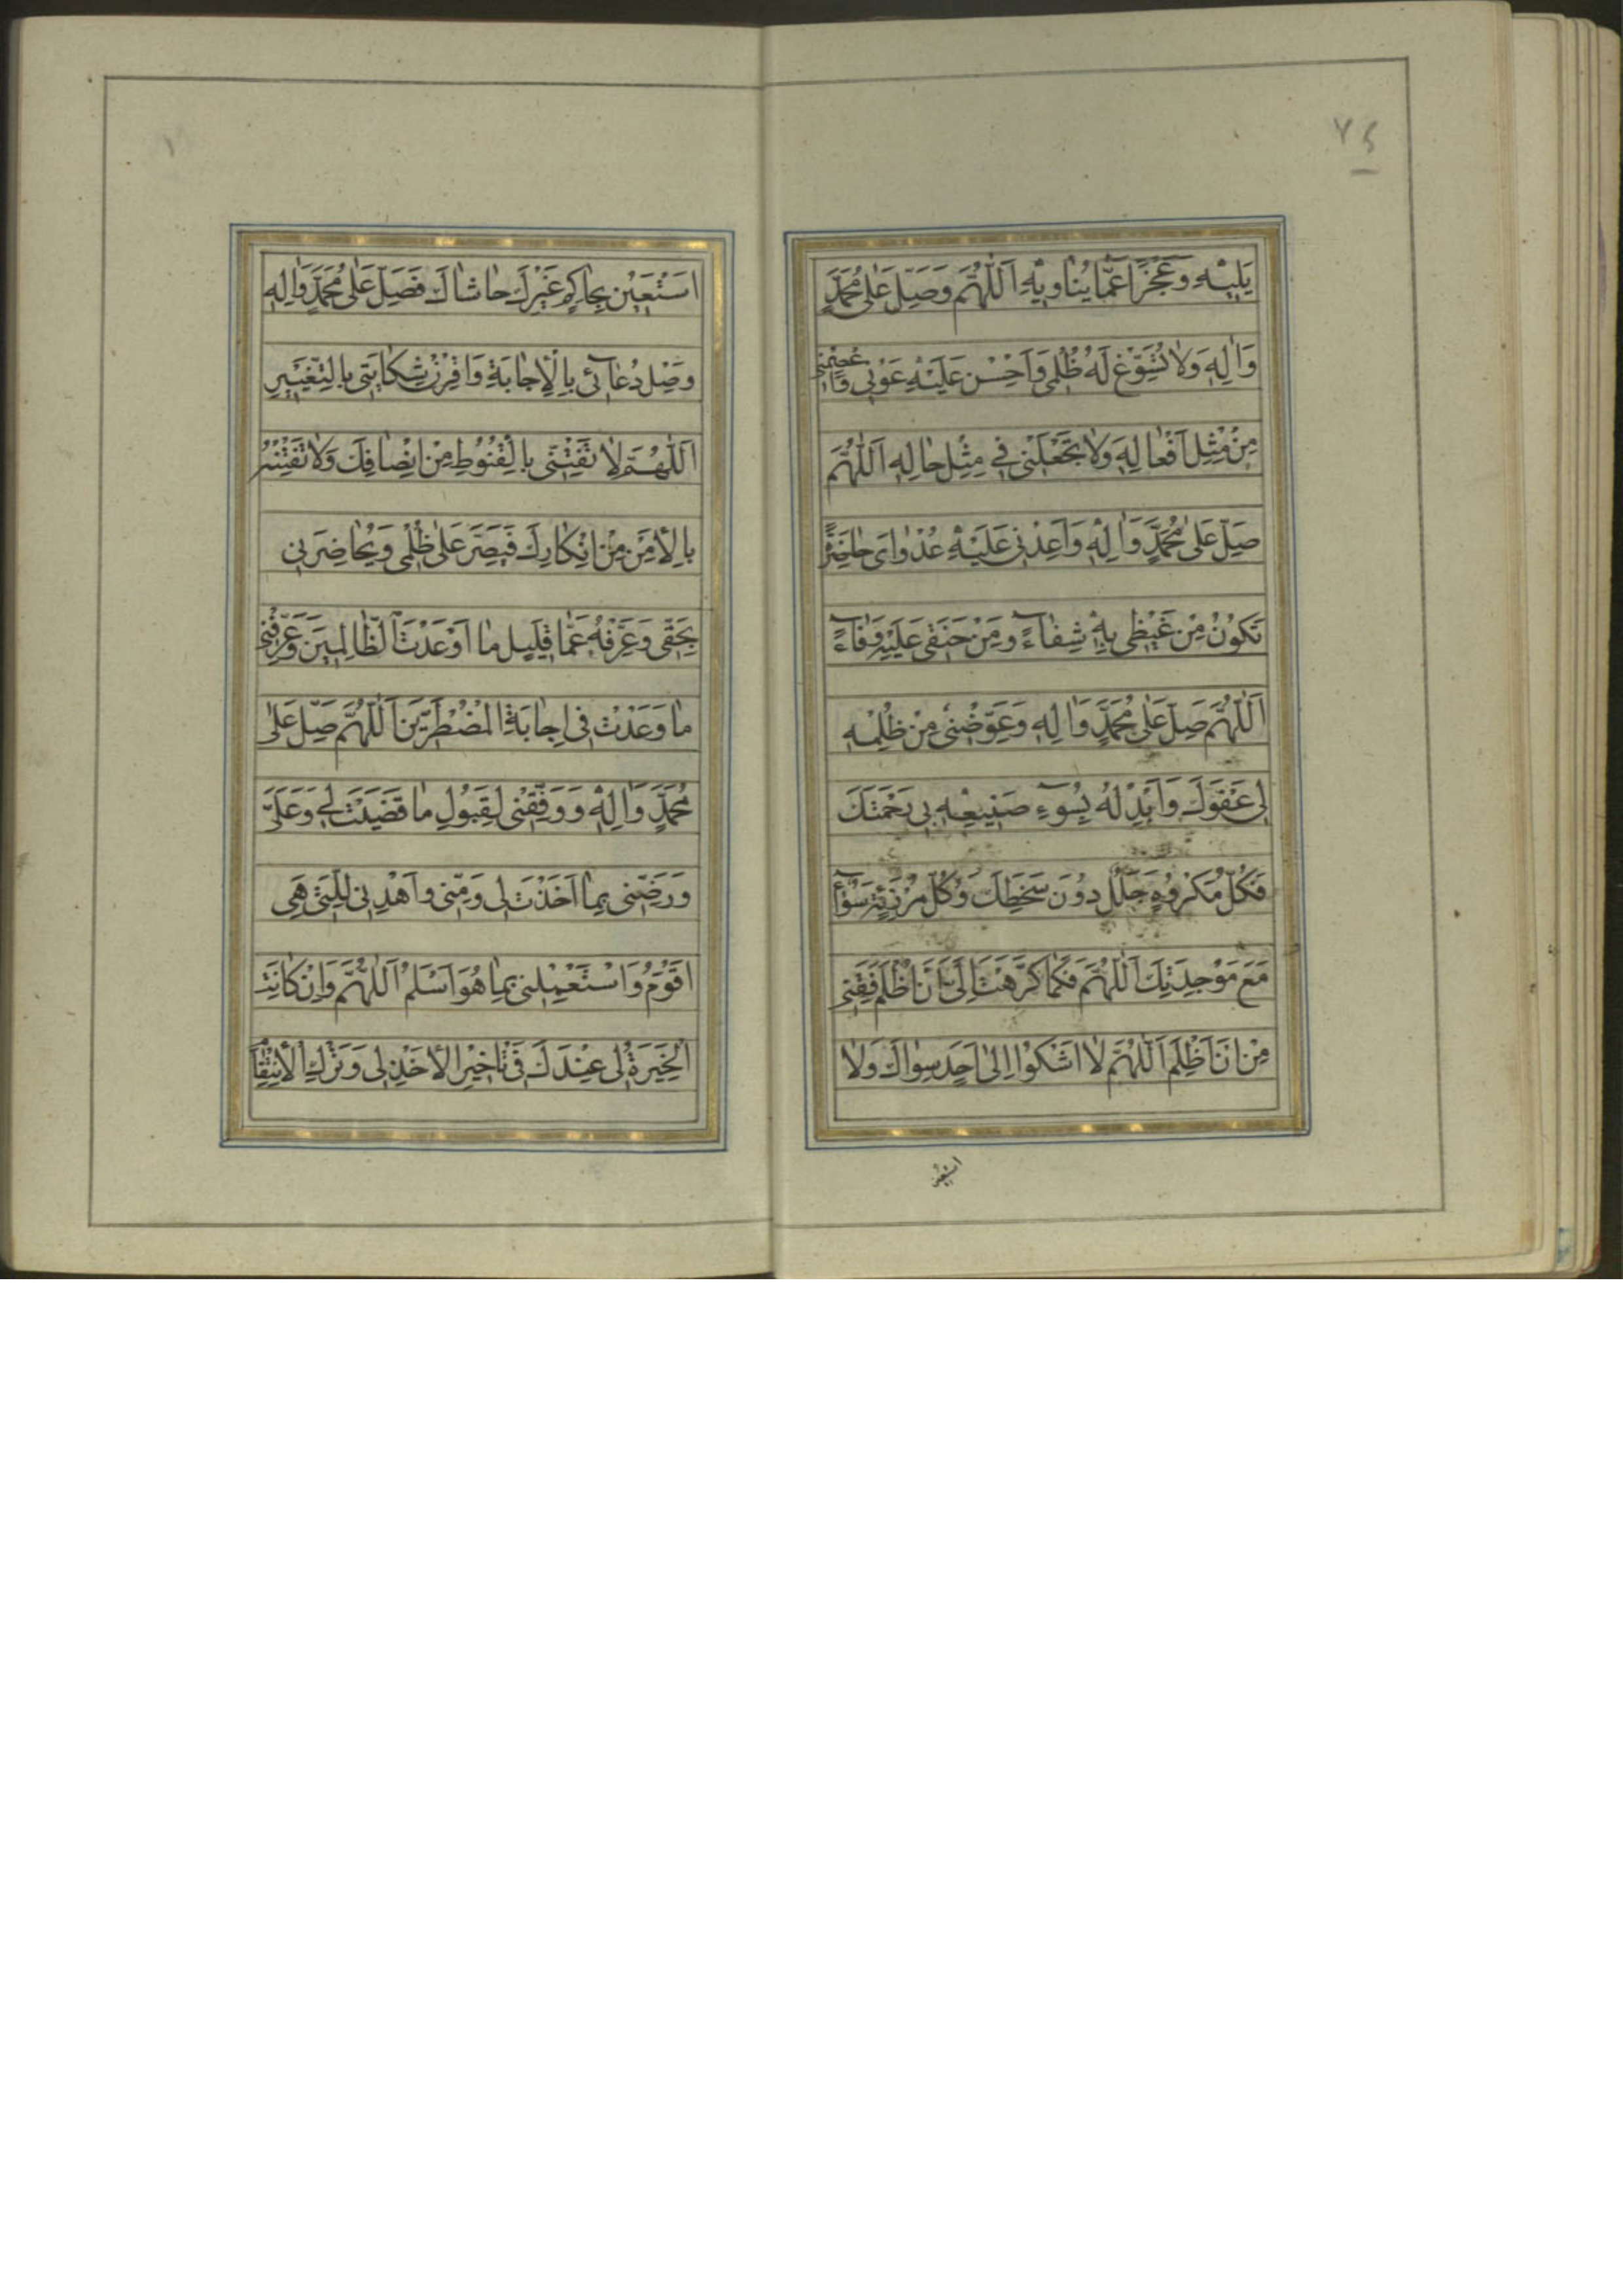 ٧٤
يَلِيْهِ وَعَجْزًا عَمَّا يُنَاوِيْهِ اَللّٰهُمَّ وَصَلِّ عَلٰى مُحَمَّدٍ
وَاٰلِهِ وَلَا تُسَوِّغْ لَهُ ظُلْمِى وَاَحْسِنْ عَلَيْهِ عَوْنِى وَاعْصِمْنِى
مِنْ مِثْلِ اَفْعَالِهِ وَلَا تَجْعَلْنِى فِى مِثْلِ حَالِهِ اَللّٰهُمَّ
صَلِّ عَلٰى مُحَمَّدٍ وَاٰلِهِ وَاَعِدْنِى عَلَيْهِ عُدْوَاى حَاضِرَةً
تَكُوْنُ مِنْ غَيْظِى بِهِ شِفَاءً وَمِنْ حَنَقِى عَلَيْهِ وَفَاءً
اَللّٰهُمَّ صَلِّ عَلٰى مُحَمَّدٍ وَاٰلِهِ وَعَوِّضْنِى مِنْ ظُلْمِهِ
لِى عَفْوَكَ وَاَبْدِلْهُ بِسُوْءِ صَنِيْعِهِ بِى رَحْمَتَكَ
فَكُلُّ مَكْرُوْهٍ جَلَلٌ دُوْنَ سَخَطِكَ وَكُلُّ مُرْزِئَةٍ سَوَاءٌ
مَعَ مَوْجِدَتِكَ اَللّٰهُمَّ فَكَمَا كَرَّهْتَ اِلَىَّ اَنْ اُظْلَمَ فَقِنِى
مِنْ اَنْ اَظْلِمَ اَللّٰهُمَّ لَا اَشْكُوْا اِلٰى اَحَدٍ سِوَاكَ وَلَا
استعين
١
اَسْتَعِيْنُ بِحَاكِمٍ غَيْرِكَ حَاشَاكَ فَصَلِّ عَلٰى مُحَمَّدٍ وَاٰلِهِ
وَصِلْ دُعَائِى بِالْاِجَابَةِ وَاقْرِنْ شِكَايَتِى بِالتَّغْيِيْرِ
اَللّٰهُمَّ لَا تَفْتِنِّى بِالْقُنُوْطِ مِنْ اِنْصَافِكَ وَلَا تَفْتِنْهُ
بِالْاَمْنِ مِنْ اِنْكَارِكَ فَيُصِرَّ عَلٰى ظُلْمِى وَيُحَاضِرَنِى
بِحَقِّى وَعَرِّفْهُ عَمَّا قَلِيْلٍ مَا اَوْعَدْتَ الظَّالِمِيْنَ وَعَرِّفْنِى
مَا وَعَدْتَ فِى اِجَابَةِ الْمُضْطَرِّيْنَ اَللّٰهُمَّ صَلِّ عَلٰى
مُحَمَّدٍ وَاٰلِهِ وَوَفِّقْنِى لِقَبُوْلِ مَا قَضَيْتَ لِى وَعَلَىَّ
وَرَضِّنِى بِمَا اَخَذْتَ لِى وَمِنِّى وَاهْدِنِى لِلَّتِى هِىَ
اَقْوَمُ وَاسْتَعْمِلْنِى بِمَا هُوَ اَسْلَمُ اَللّٰهُمَّ وَاِنْ كَانَتِ
الْخِيَرَةُ لِى عِنْدَكَ فِى تَاْخِيْرِ الْاَخْذِ لِى وَتَرْكِ الْاِنْتِقَا